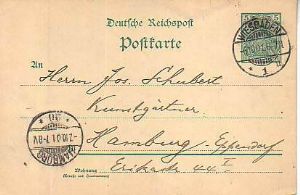 Deutsche Reichspost
Postkarte
WIESBADEN
1
An
Herrn Jos. Schubert
Kunstgärtner
Hamburg-Eppendorf
Wohnung
Erikastr. 44 I
HAMBURG
1.10.01.7-8V